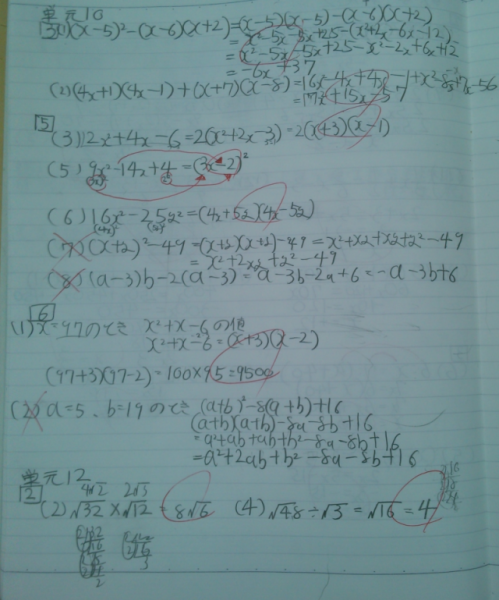 単元10
[3](1)(x-5)²-(x-6)(x+2)=(x-5)(x-5)-(x-6)(x+2)
=x²-5x-5x+25-(x²+2x-6x-12)
=x²-5x-5x+25-x²-2x+6x+12
=-6x+37
(2)(4x+1)(4x-1)+(x+7)(x-8)=16x²-4x+4x-1+x²-8x+7x-56
=17x²+15x-57
[5]
(3)12x²+4x-6=2(x²+2x-3)=2(x+3)(x-1)
(5) 9x²-14x+4=(3x-2)²
(6)16x²-25y²=(4x+5y)(4x-5y)
(7)(x+2)²-49=(x+2)(x+2)-49=x²+x2+x2+2²-49
(8)(a-3)b-2(a-3)=a-3b-2a+6=-a-3b+6
[6]
(1)x=97のとき x²+x-6の値
x²+x-6=(x+3)(x-2)
(97+3)(97-2)=100×95=9500
(2)a=5、b=19のとき (a+b)²-8(a+b)+16
(a+b)(a+b)-8a-8b+16
=a²+ab+ab+b²-8a-8b+16
=a²+2ab+b²-8a-8b+16
単元12
[2] 4√2 2√3
(2)√32×√12=8√6 (4)√48÷√3=√16=4